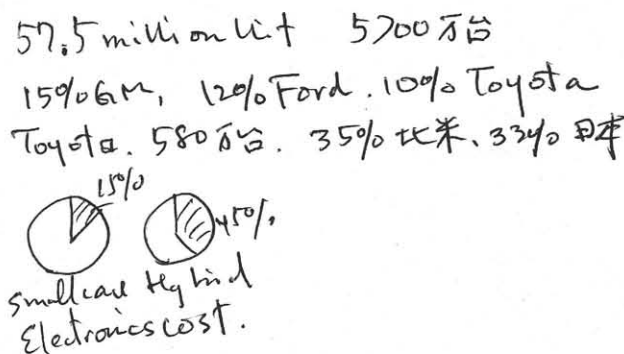 57.5 million unit 5700万台
15% GM, 12% Ford. 10% Toyota
Toyota. 580万台. 35% 北米、33% 日本
15%
45%
Small car Hybrid
Electronics cost.